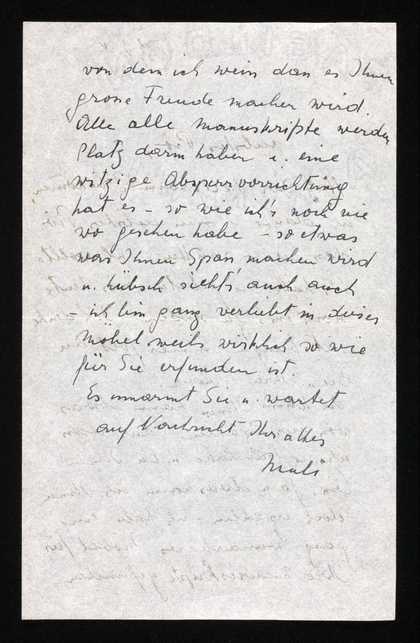 von dem ich weiss dass es Ihnen
grosse Freude machen wird.
Alle alle Manuskripte werden
Platz darin haben u. eine
witzige Absperrvorrichtung
hat es – so wie ich's noch nie
wo gesehen habe – so etwas
was Ihnen Spass machen wird
u. hübsch sieht's auch auch
– ich bin ganz verliebt in dieses
Möbel weils wirklich so wie
für Sie erfunden ist.
Es umarmt Sie u. wartet
auf Nachricht Ihr altes